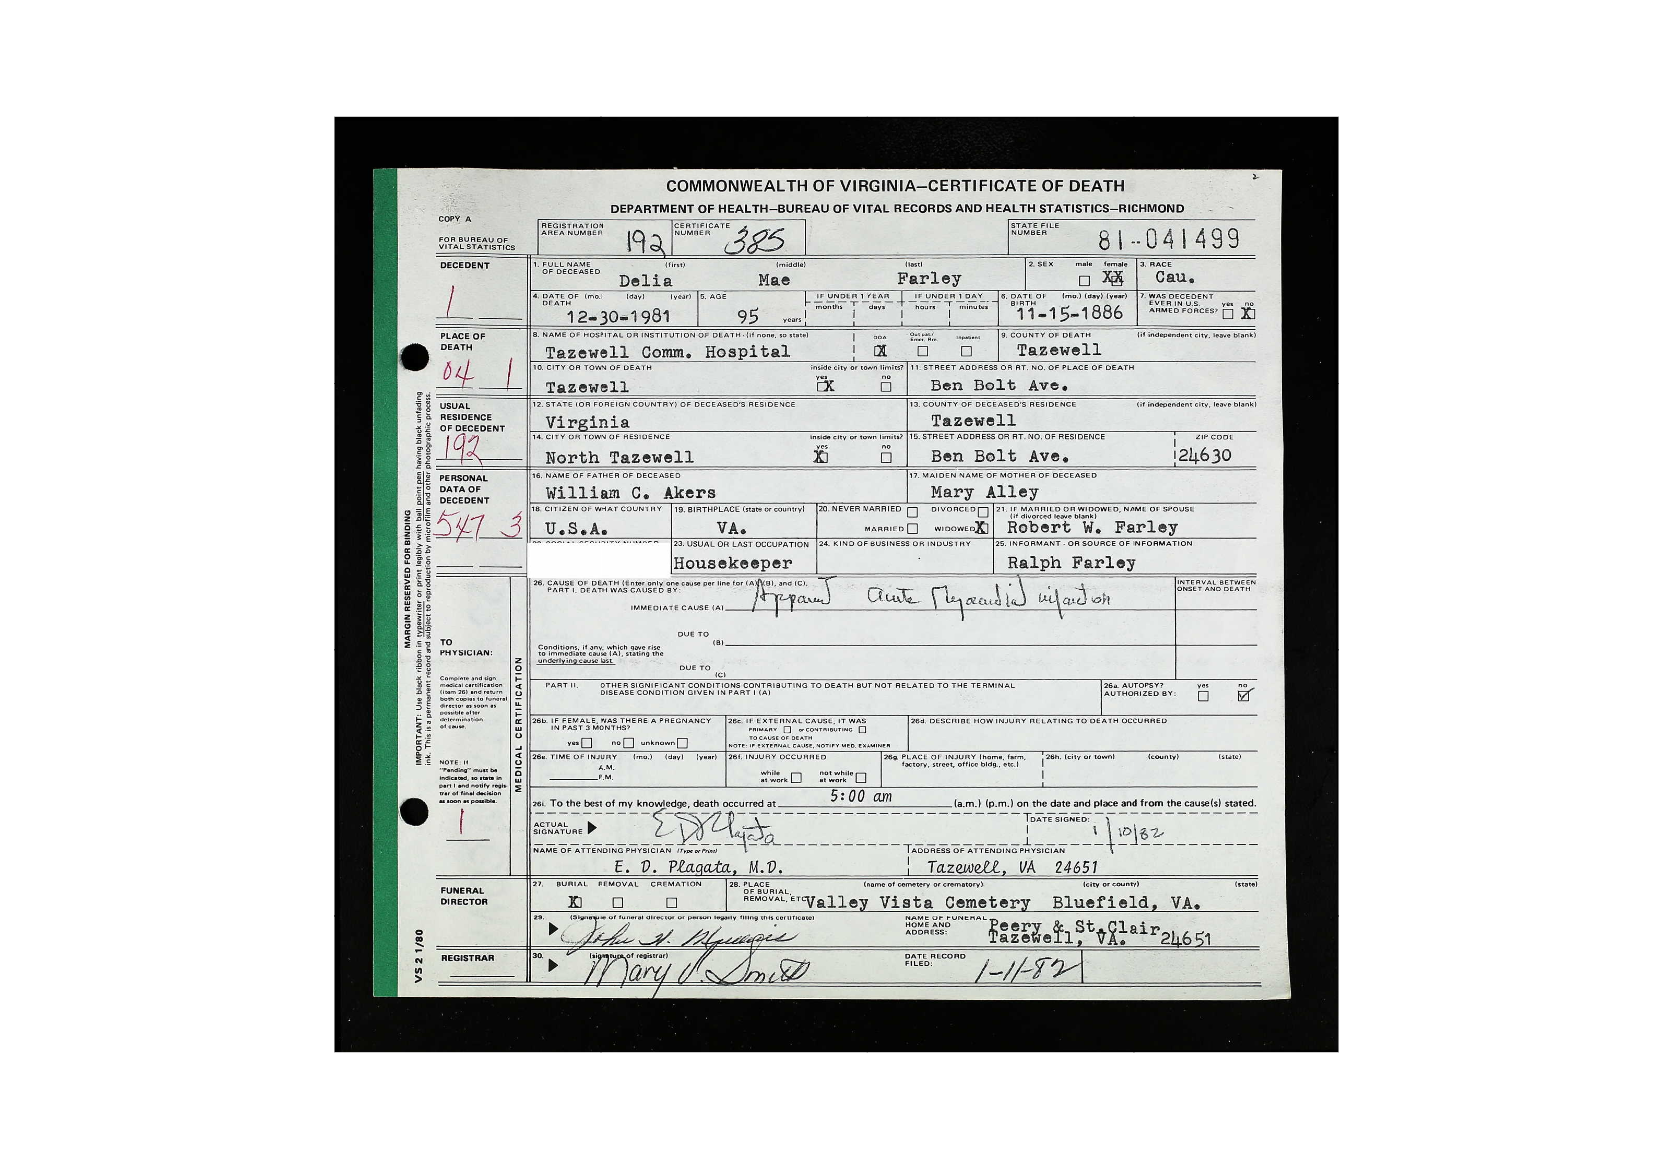 2
COMMONWEALTH OF VIRGINIA—CERTIFICATE OF DEATH
DEPARTMENT OF HEALTH—BUREAU OF VITAL RECORDS AND HEALTH STATISTICS—RICHMOND
COPY A
FOR BUREAU OF VITAL STATISTICS
REGISTRATION AREA NUMBER 192
CERTIFICATE NUMBER 385
STATE FILE NUMBER 81-041499
DECEDENT
1
1. FULL NAME OF DECEASED (first) (middle) (last)
Delia Mae Farley
2. SEX male female XX
3. RACE
Cau.
4. DATE OF DEATH (mo.) (day) (year)
12-30-1981
5. AGE
95 years
IF UNDER 1 YEAR months days
IF UNDER 1 DAY hours minutes
6. DATE OF BIRTH (mo.) (day) (year)
11-15-1886
7. WAS DECEDENT EVER IN U.S. ARMED FORCES? yes no X
PLACE OF DEATH
04 1
8. NAME OF HOSPITAL OR INSTITUTION OF DEATH (if none, so state)
Tazewell Comm. Hospital
DOA X Out pat/ Emer. Rm. Inpatient
9. COUNTY OF DEATH (if independent city, leave blank)
Tazewell
10. CITY OR TOWN OF DEATH inside city or town limits? yes X no
Tazewell
11. STREET ADDRESS OR RT. NO. OF PLACE OF DEATH
Ben Bolt Ave.
USUAL RESIDENCE OF DECEDENT
192
12. STATE (OR FOREIGN COUNTRY) OF DECEASED'S RESIDENCE
Virginia
13. COUNTY OF DECEASED'S RESIDENCE (if independent city, leave blank)
Tazewell
14. CITY OR TOWN OF RESIDENCE inside city or town limits? yes X no
North Tazewell
15. STREET ADDRESS OR RT. NO. OF RESIDENCE ZIP CODE
Ben Bolt Ave. 24630
PERSONAL DATA OF DECEDENT
547 3
16. NAME OF FATHER OF DECEASED
William C. Akers
17. MAIDEN NAME OF MOTHER OF DECEASED
Mary Alley
18. CITIZEN OF WHAT COUNTRY
U.S.A.
19. BIRTHPLACE (state or country)
VA.
20. NEVER MARRIED DIVORCED
MARRIED WIDOWED X
21. IF MARRIED OR WIDOWED, NAME OF SPOUSE (if divorced leave blank)
Robert W. Farley
23. USUAL OR LAST OCCUPATION
Housekeeper
24. KIND OF BUSINESS OR INDUSTRY
25. INFORMANT - OR SOURCE OF INFORMATION
Ralph Farley
MARGIN RESERVED FOR BINDING
IMPORTANT: Use black ribbon in typewriter or print legibly with ball point pen having black unfading ink. This is a permanent record and subject to reproduction by microfilm and other photographic process.
TO PHYSICIAN:
Complete and sign medical certification (item 26) and return both copies to funeral director as soon as possible after determination of cause.
NOTE: If "Pending" must be indicated, so state in part I and notify registrar of final decision as soon as possible.
1
MEDICAL CERTIFICATION
26. CAUSE OF DEATH (Enter only one cause per line for (A), (B), and (C).
PART I. DEATH WAS CAUSED BY:
INTERVAL BETWEEN ONSET AND DEATH
IMMEDIATE CAUSE (A) Apparent Acute Myocardial infarction
DUE TO (B)
Conditions, if any, which gave rise to immediate cause (A), stating the underlying cause last.
DUE TO (C)
PART II. OTHER SIGNIFICANT CONDITIONS CONTRIBUTING TO DEATH BUT NOT RELATED TO THE TERMINAL DISEASE CONDITION GIVEN IN PART I (A)
26a. AUTOPSY? AUTHORIZED BY: yes no
26b. IF FEMALE, WAS THERE A PREGNANCY IN PAST 3 MONTHS?
yes no unknown
26c. IF EXTERNAL CAUSE, IT WAS PRIMARY or CONTRIBUTING TO CAUSE OF DEATH
NOTE: IF EXTERNAL CAUSE, NOTIFY MED. EXAMINER
26d. DESCRIBE HOW INJURY RELATING TO DEATH OCCURRED
26e. TIME OF INJURY (mo.) (day) (year)
A.M.
P.M.
26f. INJURY OCCURRED
while at work not while at work
26g. PLACE OF INJURY (home, farm, factory, street, office bldg., etc.)
26h. (city or town) (county) (state)
26i. To the best of my knowledge, death occurred at 5:00 am (a.m.) (p.m.) on the date and place and from the cause(s) stated.
ACTUAL SIGNATURE E D Plagata
DATE SIGNED: 1/10/82
NAME OF ATTENDING PHYSICIAN (Type or Print)
E. D. Plagata, M.D.
ADDRESS OF ATTENDING PHYSICIAN
Tazewell, VA 24651
FUNERAL DIRECTOR
27. BURIAL REMOVAL CREMATION
X
28. PLACE OF BURIAL, REMOVAL, ETC. (name of cemetery or crematory) (city or county) (state)
Valley Vista Cemetery Bluefield, VA.
29. (Signature of funeral director or person legally filing this certificate)
John
NAME OF FUNERAL HOME AND ADDRESS:
Peery & St.Clair
Tazewell, VA. 24651
REGISTRAR
30. (signature of registrar)
Mary V. Smith
DATE RECORD FILED: 1-11-82
VS 2 1/80